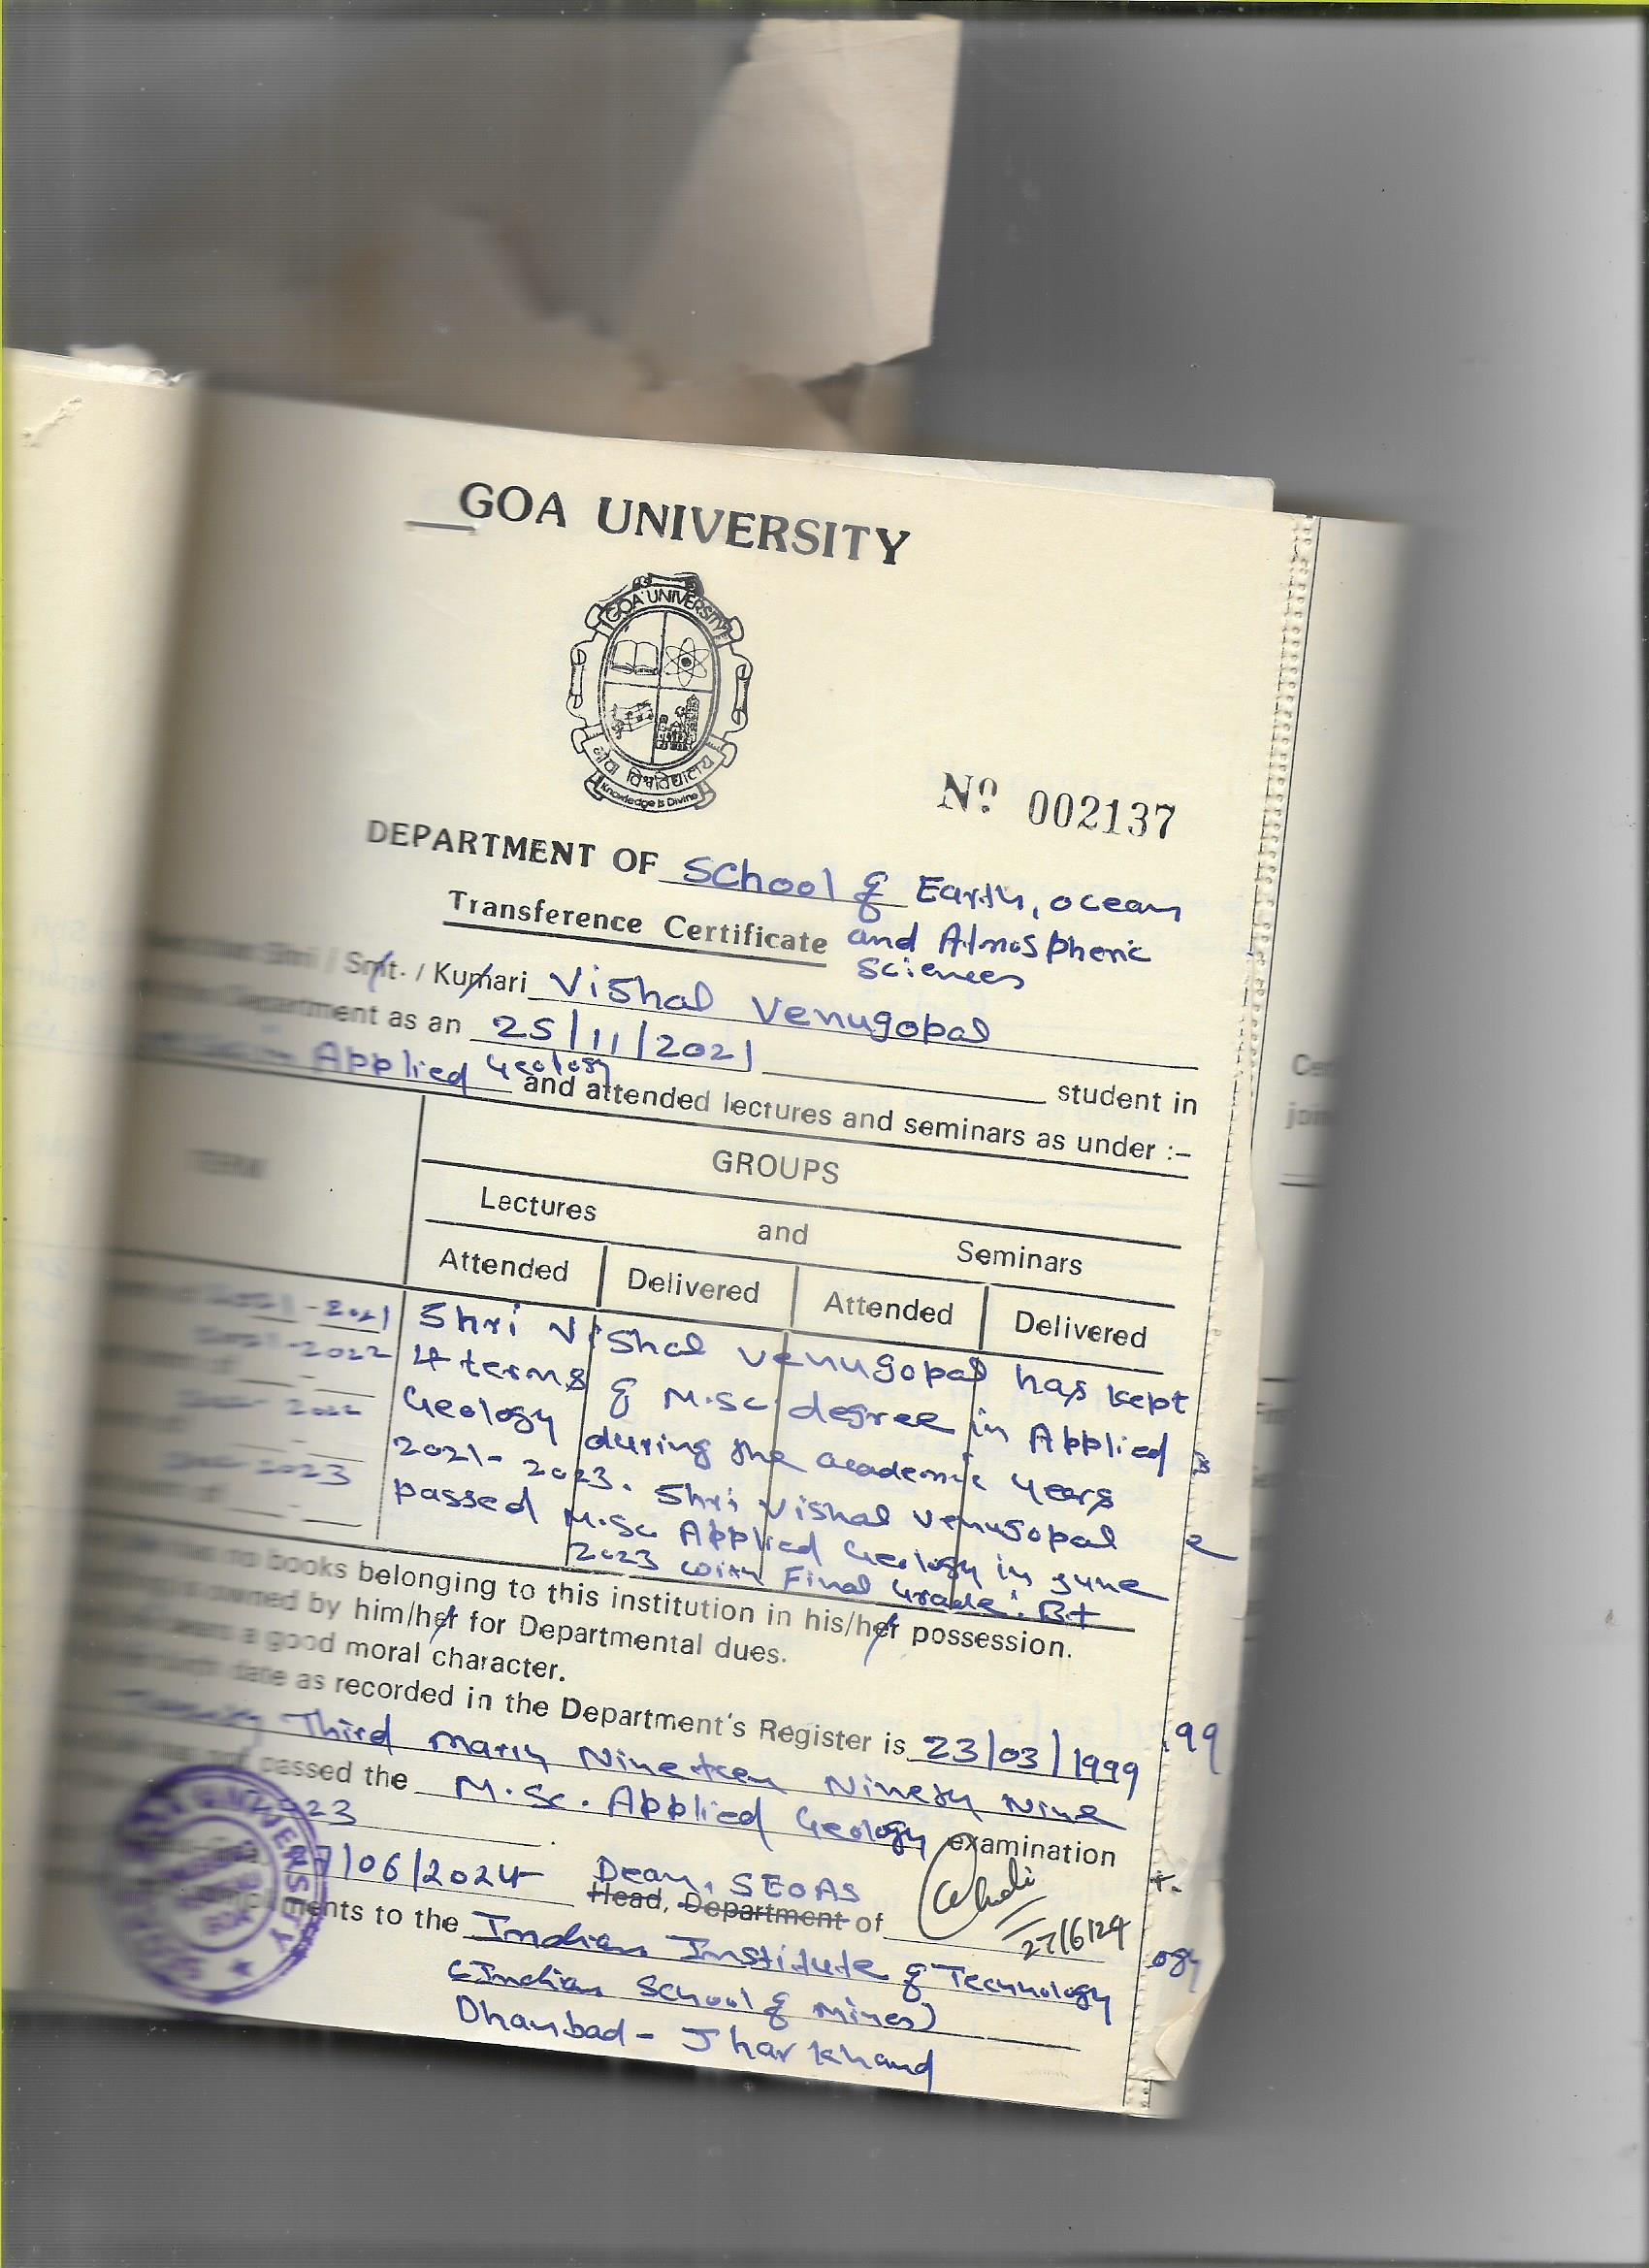 GOA UNIVERSITY
GOA UNIVERSITY
गोवा विश्वविद्यालय
Knowledge is Divine
Nº 002137
DEPARTMENT OF School of Earth, ocean
Transference Certificate and Atmospheric
Sciences
Shri / Smt. / Kumari Vishal Venugopal
Department as an 25/11/2021 student in
Applied Geology and attended lectures and seminars as under :-
TERM
GROUPS
Lectures and Seminars
Attended Delivered Attended Delivered
2021 - 2021
2021 - 2022
2022
2023
Shri Vishal Venugopal has kept
4 terms of M.Sc degree in Applied
Geology during the academic years
2021 - 2023. Shri Vishal Venugopal
passed M.Sc. Applied Geology in June
2023 with Final Grade: B+
no books belonging to this institution in his/her possession.
owned by him/her for Departmental dues.
a good moral character.
date as recorded in the Department's Register is 23/03/1999
Twenty Third March Nineteen Ninety Nine
passed the M.Sc. Applied Geology examination
23
7/06/2024 Dean, SEOAS
Head, Department of
27/6/24
to the Indian Institute of Technology
(Indian School of Mines)
Dhanbad - Jharkhand
UNIVERSITY
99
ogy